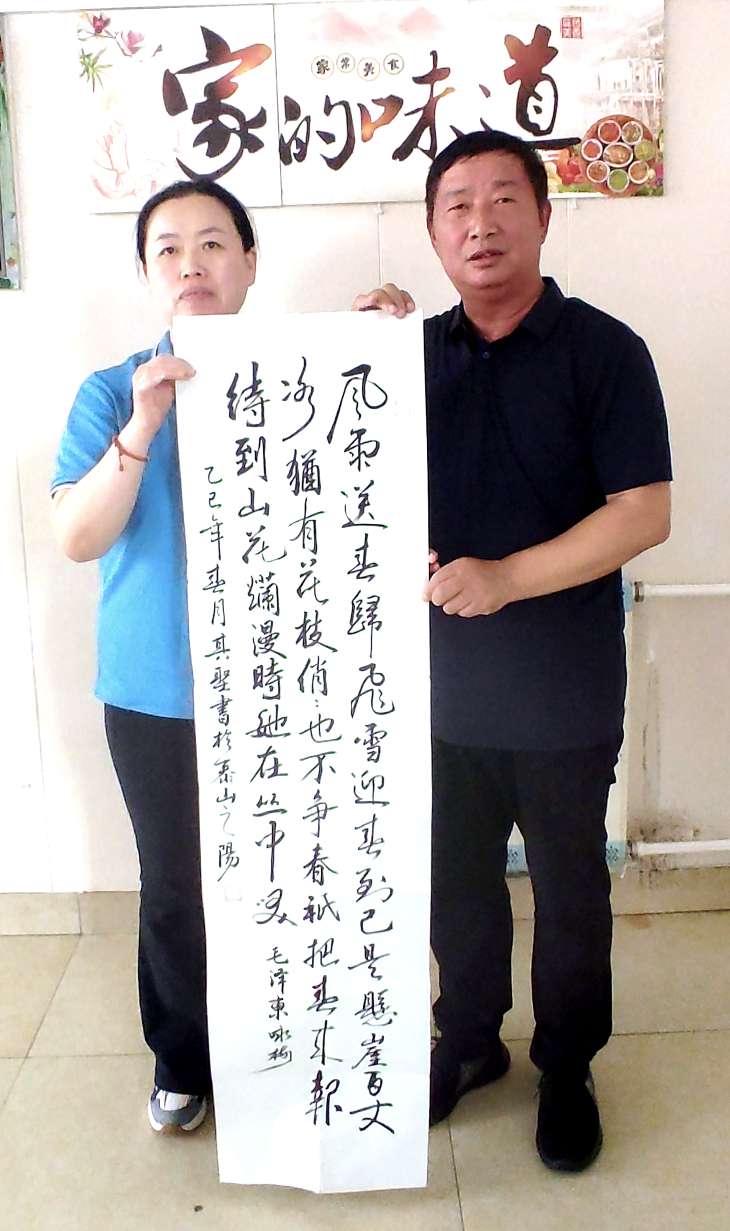 家常美食
家的味道
風雨送春歸飛雪迎春到已是懸崖百丈
冰猶有花枝俏俏也不争春祇把春來報
待到山花爛漫時她在丛中笑
毛泽東咏梅
乙巳年春月其聖書於泰山之陽